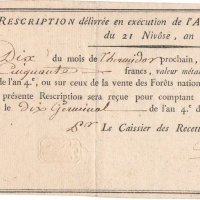 RESCRIPTION délivrée en exécution de l'A
du 21 Nivôse, an
Dix du mois de Thermidor prochain,
Cinquante francs, valeur métal
de l'an 4.e, ou sur ceux de la vente des Forêts nation
présente Rescription sera reçue pour comptant
le dix Germinal de l'an 4.e d
Le Caissier des Recett